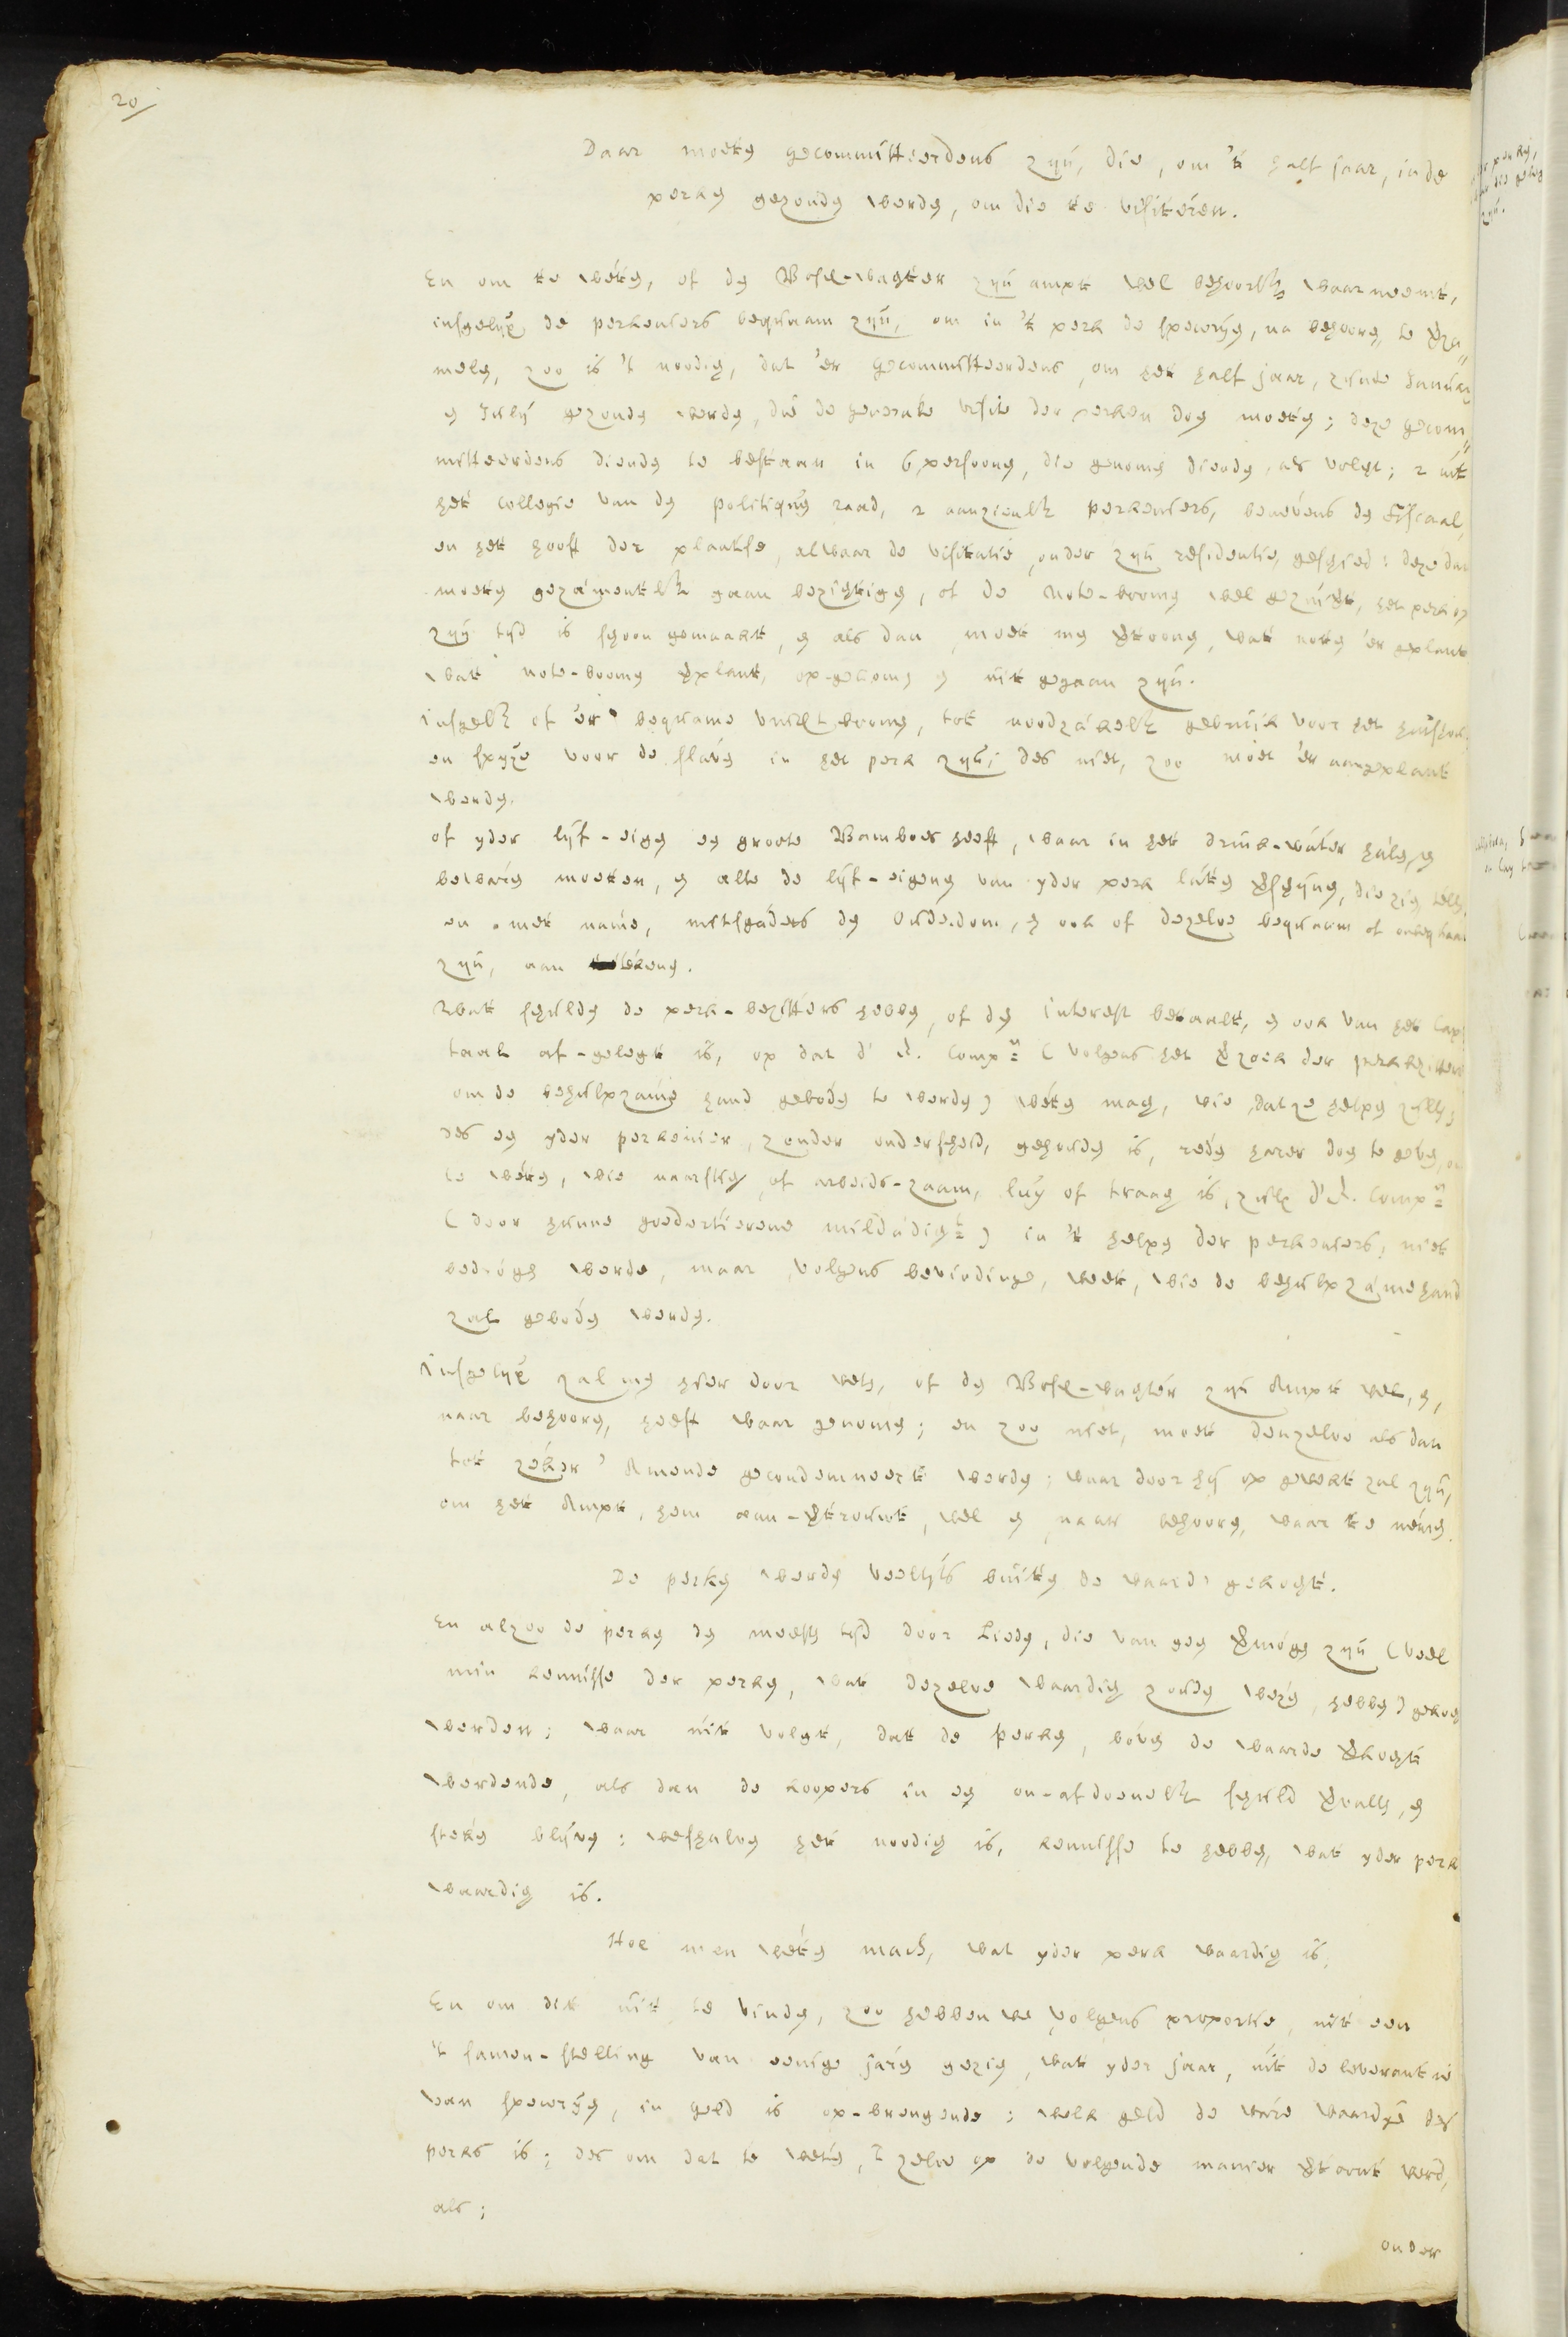 20/
Daar moeten gecommitteerdens zyn, die, om 't half jaar, in de
perken gezonden werden, om die te visiteren.
En om te weten, of den Bosch-wagter zyn ampt wel behoorlyk waarneemt,
insgelyx de perkeniers bequaam zyn, om in 't perk de speceryen, na behooren, te verza„
melen, zoo is 't noodig, dat 'er gecommitteerdens, om het half jaar, zynde January
en July gezonden werden, die de generale visite der perken doen moeten; deze gecom„
mitteerdens dienden te bestaan in 6 persoonen, die genomen dienden, als volgt; 2 uit
het collegie van den politiquen raad, 2 aanzienlyk perkeniers, benevens den Fiscaal,
en het hooft der plaatse, alwaar de visitatie, onder zyn residentie, geschied: deze dan
moeten gezamentlyk gaan bezigtigen, of de note-boomen wel gezuigt, het perk op
zyn tyd is schoon gemaakt, en als dan moet men vertoonen, wat noten 'er geplant
wat note-boomen verplant, op-gekomen en uit gegaan zyn.
Insgelyk of 'er bequame vrugt boomen, tot noodzakelyk gebruik voor het huishoud
en spyze voor de slaven in het perk zyn; des niet, zoo moet 'er aangeplant
werden.
of yder lyf-eigen een groote Bamboes heeft, waar in het drink-water halen, en
bewaren moeten, en alle de lyf-eigenen van yder perk laten verschynen, die zig tellen
en met name, mitsgaders den Ouderdom, en ook of dezelve bequaam of onbequaam
zyn, aan tekenen.
Wat schulden de perk-bezitters hebben, of den interest betaalt, en ook van het capi
taal af-gelegt is, op dat d' E. Comp:e (volgens het verzoek der perkbezitters
om de behulpzame hand geboden te werden) weten mag, wie dat ze helpen zullen;
des een yder perkenier, zonder onderscheid, gehouden is, reden harer doen te geven, om
te weten, wie naarstig, of arbeids-zaam, luy of traag is, zulx d'E. Comp:e
(door hunne goedertierene mildadigh:t) in 't helpen der perkeniers, niet
bedrogen werde, maar, volgens bevindinge, weet, wie de behulpzame hand
zal geboden werden.
Insgelyx zal men hier door weten, of den Bosch-wagter zyn Ampt wel, en,
naar behooren, heeft waar genomen; en zoo niet, moet denzelve als dan
tot zeker' Amende gecondemneert werden; waar door hy op gewekt zal zyn,
om het Ampt, hem aan-vertrouwt, wel en naar behooren, waar te nemen.
De perken werden veeltyts buiten de waarde gekogt.
En alzoo de perken den meesten tyd door Lieden, die van geen vermogen zyn (veel
min kennisse der perken, wat dezelve waardig zouden wezen, hebben) gekogt
werden; waar uit volgt, dat de perken, boven de waarde verkogt
werdende, als dan de koopers in een on-afdoenelyk schuld vervallen, en
steken blyven: weshalven het noodig is, kennisse te hebben, wat yder perk
waardig is.
Hoe men weten mach, wat yder perk waardig is.
En om dit uit te vinden, zoo hebben we volgens proportie, uit een
't samen-stelling van eenige jaren gezien, wat yder jaar, uit de leverantie
van speceryen, in geld is op-brengende; welk geld de ware waardye des
perks is; des om dat te weten, 't zelve op de volgende manier vertoont werd,
als;
onder